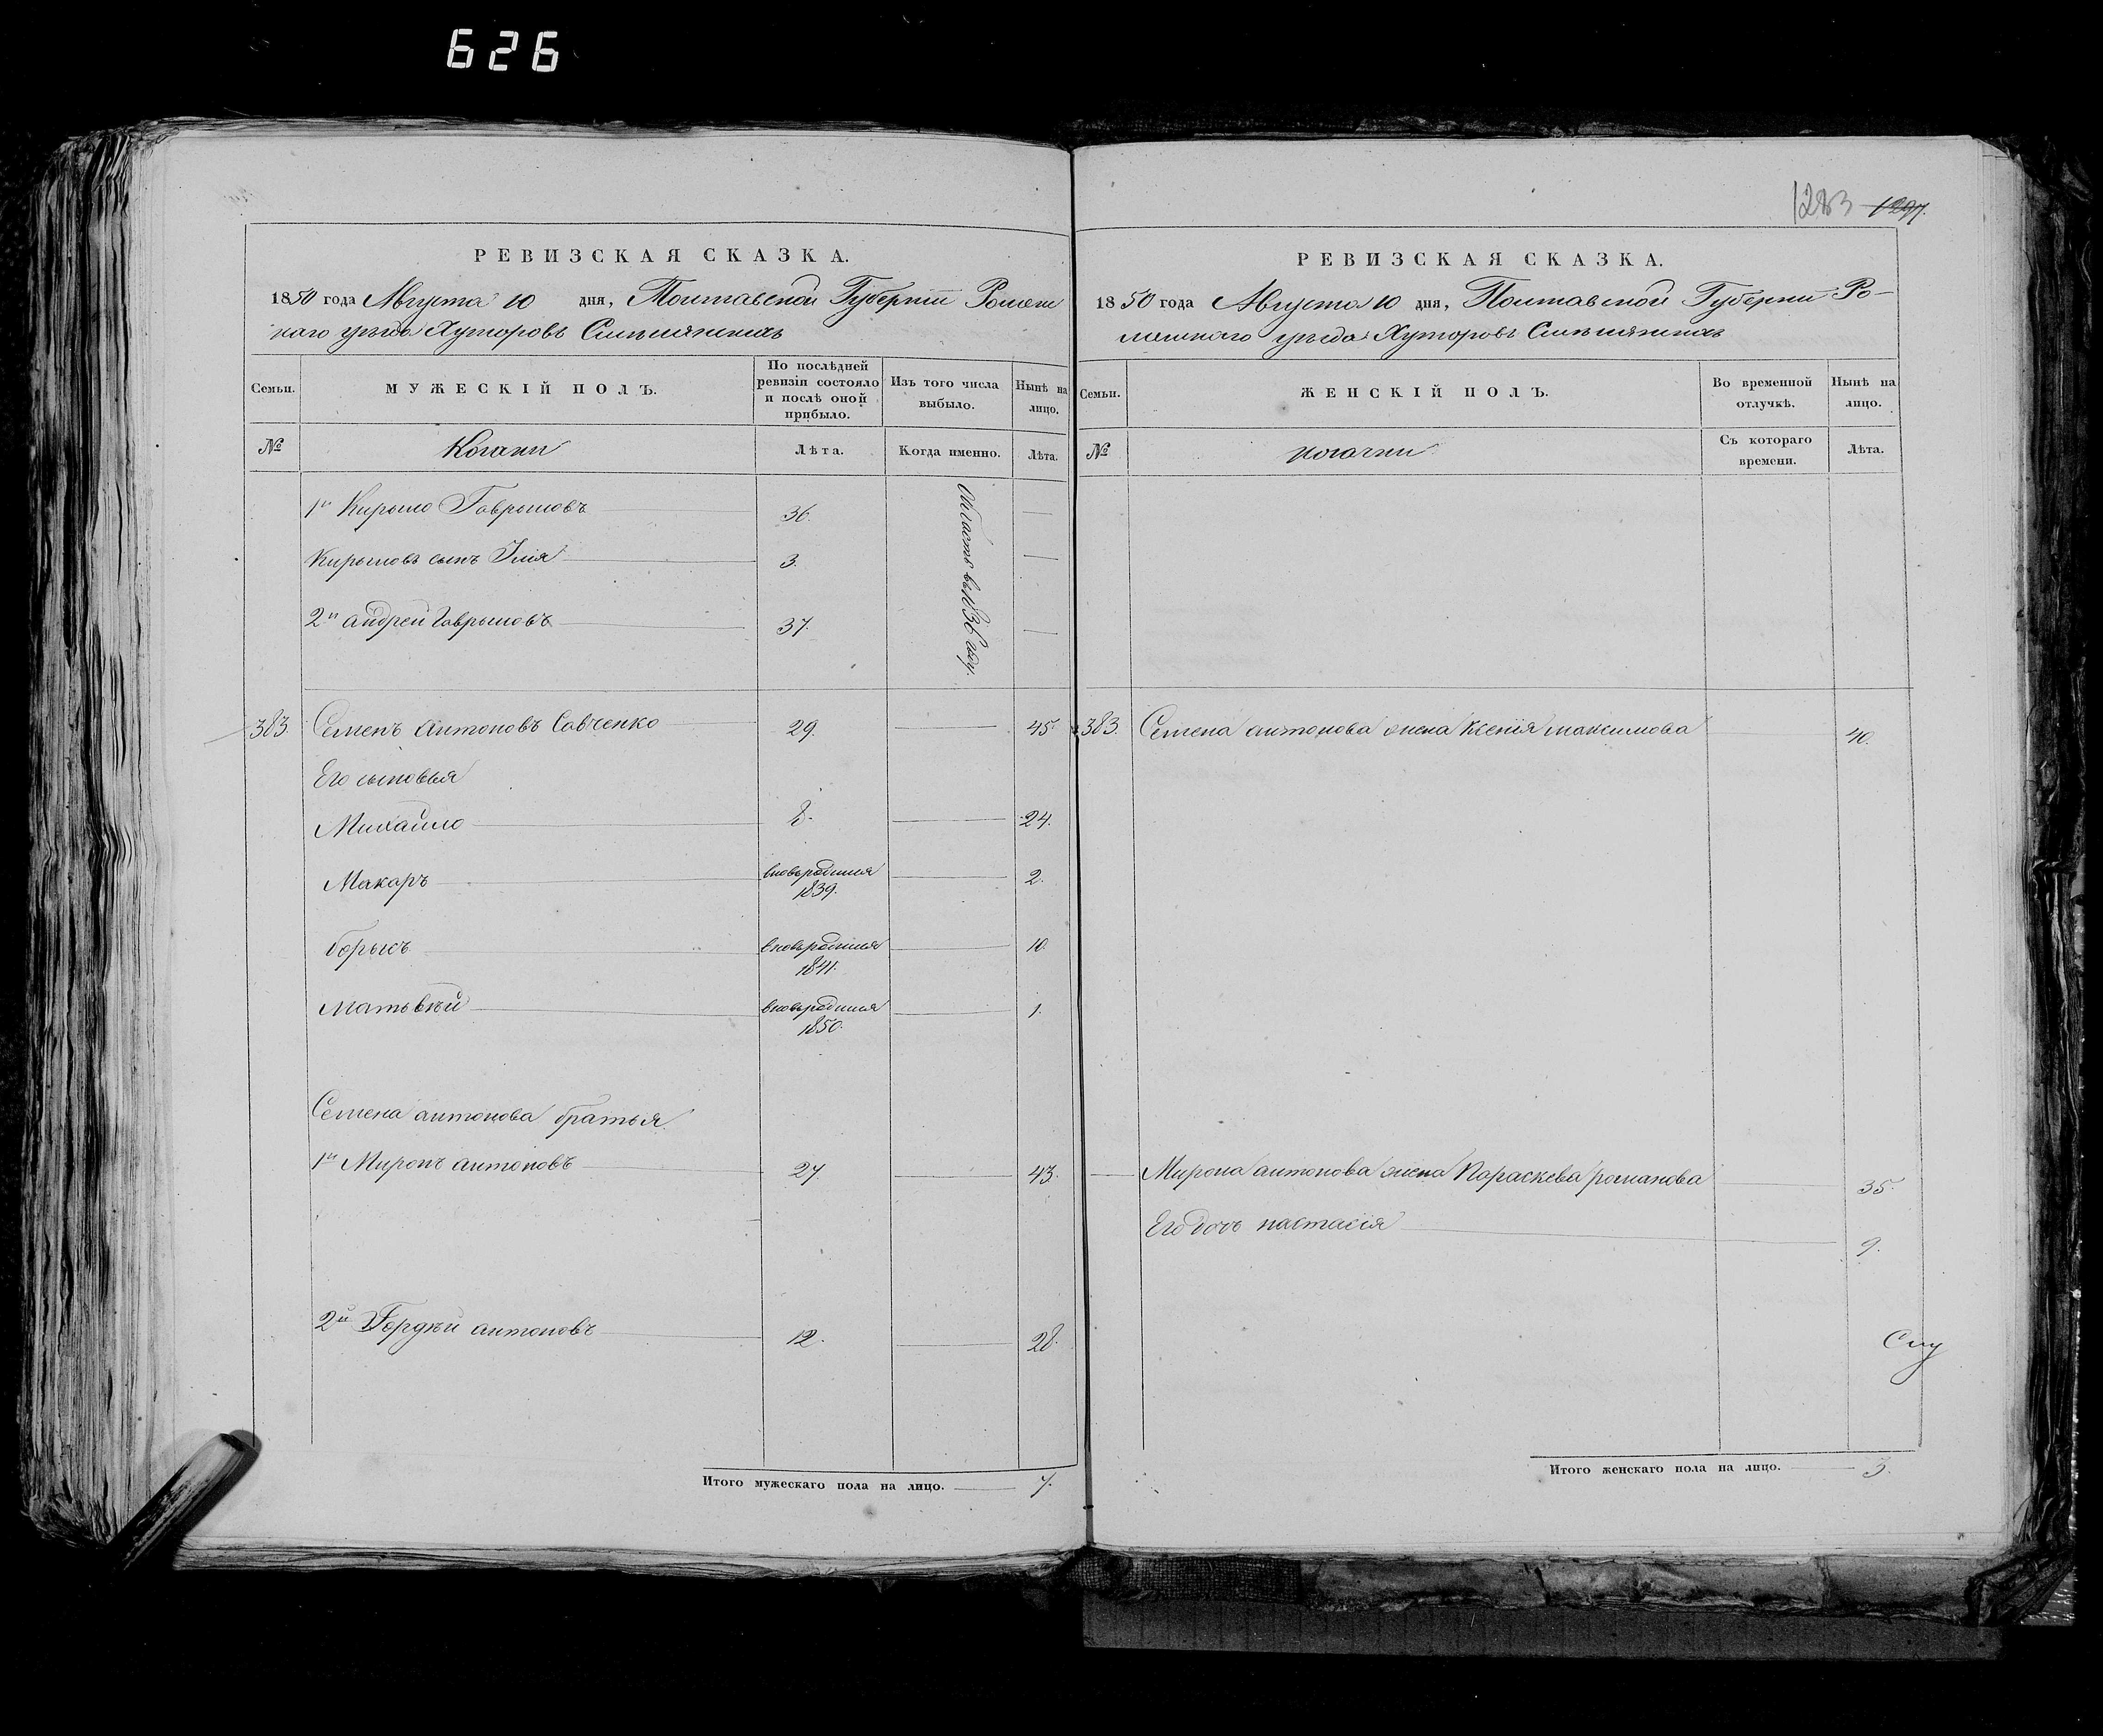 626
1283 1297.
РЕВИЗСКАЯ СКАЗКА.
1850 года Августа 10 дня, Полтавской Губернии Ромен
наго уезда Хуторовъ
Семьи. МУЖЕСКІЙ ПОЛЪ. По послѣдней ревизіи состояло и послѣ оной прибыло. Изъ того числа выбыло. Нынѣ на лицо.
№ Козаки Лѣта. Когда именно. Лѣта.
1й Кирыло Гаврыловъ 36.
Кирыловъ сынъ Илія 3.
2й андрей Гаврыловъ 37.
1836 году.
383. Семенъ антоновъ Савченко 29. 45.
Его сыновья
Михайло 8. 24.
Макаръ вновьродился 1839. 2.
борысъ вновьродился 1841. 10.
матьвѣй вновьродился 1850. 1.
Семена антонова братья
1й Миронъ антоновъ 27. 43.
2й Гордѣй антоновъ 12. 28.
Итого мужескаго пола на лицо. 7.
РЕВИЗСКАЯ СКАЗКА.
1850 года Августа 10 дня, Полтавской Губернии Ро-
менскаго уѣзда Хуторовъ
Семьи. ЖЕНСКІЙ ПОЛЪ. Во временной отлучкѣ. Нынѣ на лицо.
№ козачки Съ котораго времени. Лѣта.
383. Семена антонова жена Ксенія максимова 40.
Мирона антонова жена Параскева романова 35.
Его дочь настасія 9.
Итого женскаго пола на лицо. 3.